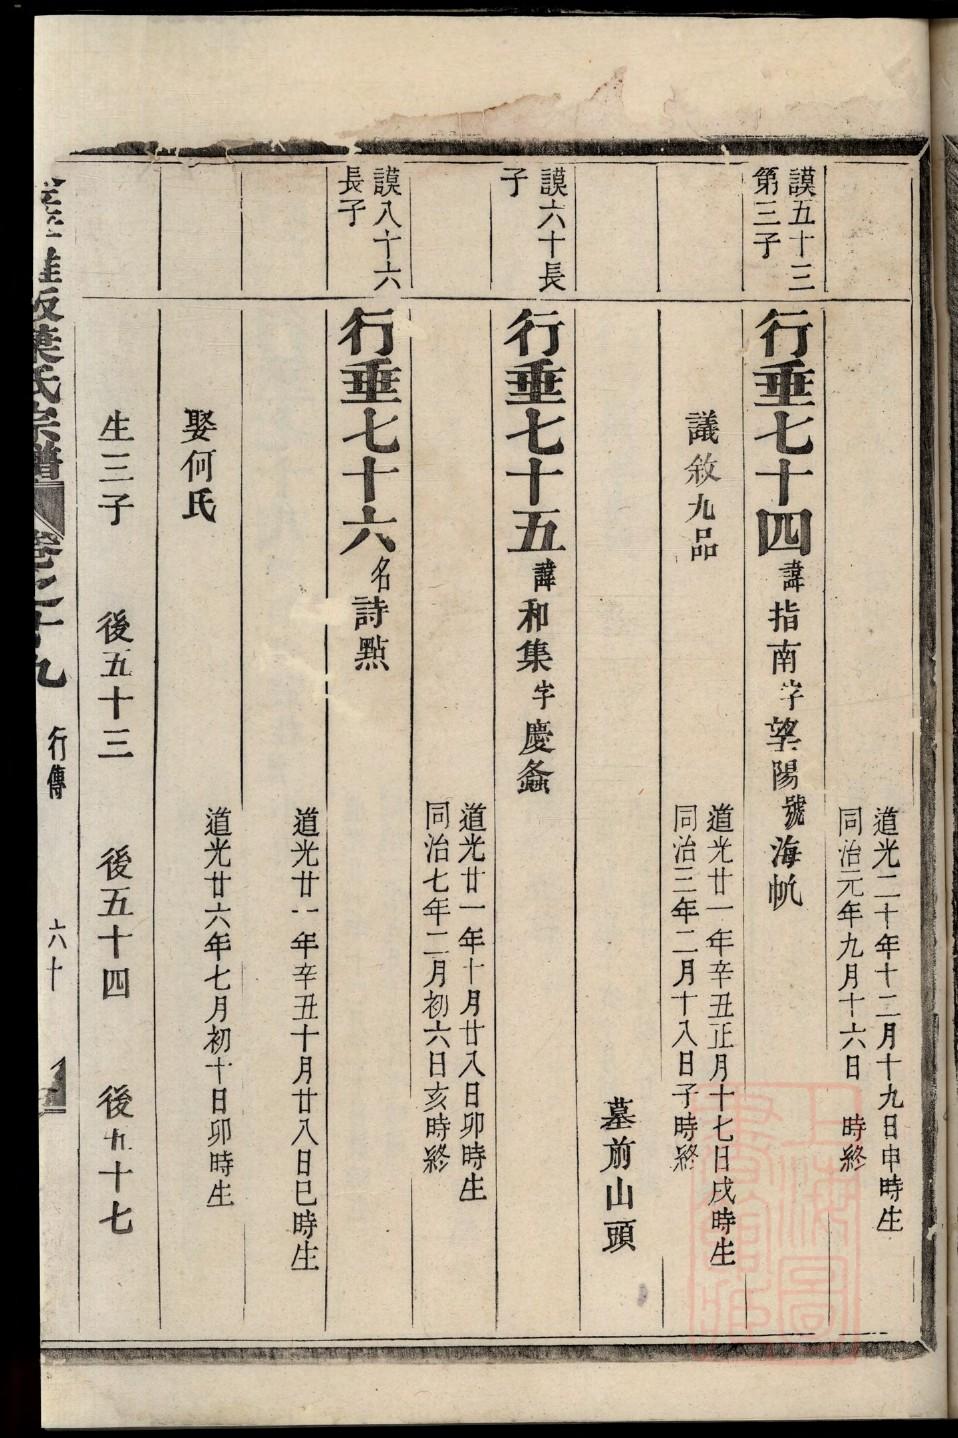 道光二十年十二月十九日申時生
同治元年九月十六日 時終
謨五十三
第三子
行垂七十四諱指南字望陽號海帆
道光廿一年辛丑正月十七日戌時生
同治三年二月十八日子時終
議敘九品
墓前山頭
謨六十長
子
行垂七十五諱和集字慶螽
道光廿一年十月廿八日卯時生
同治七年二月初六日亥時終
謨八十六
長子
行垂七十六名詩點
道光廿一年辛丑十月廿八日巳時生
娶何氏
道光廿六年七月初十日卯時生
生三子 後五十三 後五十四 後九十七
葉氏宗譜 卷之十九 行傳 六十
上海圖書館藏